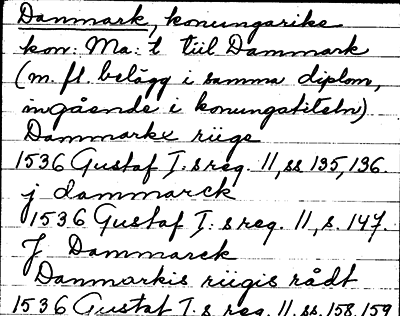 Danmark, konungarike
kon: Ma: t tiil Danmark
(m. fl. belägg i samma diplom,
ingående i konungatiteln)
Danmarkx riige
1536 Gustaf I:s reg. 11, ss 135, 136.
j dammarck
1536 Gustaf I: s reg. 11, s. 147.
J Danmarck
Danmarkis riigis rådt
1536 Gustaf I:s reg. 11, ss. 158, 159